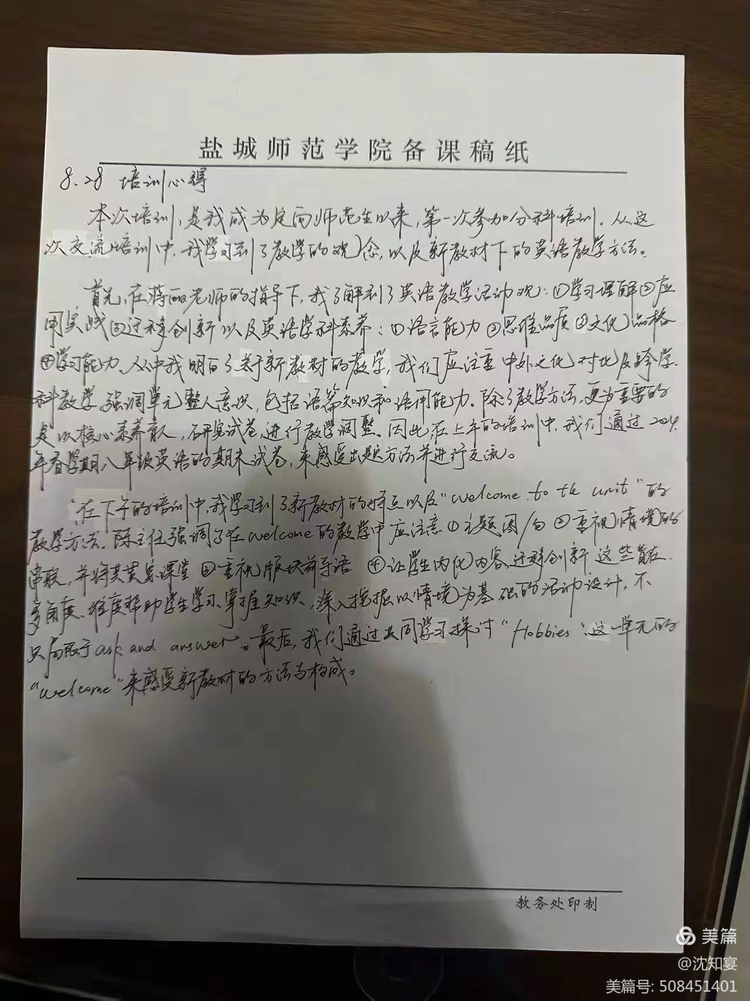 盐城师范学院备课稿纸
8.28 培训心得
本次培训,是我成为定向师范生以来,第一次参加分科培训.从这
次交流培训中,我学习到了教学的观念,以及新教材下的英语教学方法。
首先,在蒋老师的指导下,我了解到了英语教学活动观:①学习理解②应
用实践③迁移创新以及英语学科素养:①语言能力②思维品质③文化品格
④学习能力.从中我明白了关于新教材的教学,我们应注重中外文化对比及跨学
科教学,强调单元整体意识,包括语篇知识和语用能力.除了教学方法,更为重要的
是以核心素养育人,研究试卷,进行教学调整.因此,在上午的培训中,我们通过2024
年春学期八年级英语的期末试卷,来感受出题方法并进行交流。
在下午的培训中,我学习到了新教材的特点以及"welcome to the unit"的
教学方法.陈主任强调了在welcome的教学中应注意①主题 ②重视情境的
串联,并将其贯穿课堂③重视版块前导语④让学生内化内容,迁移创新.这些旨在
多角度、维度帮助学生学习、掌握知识,深入挖掘以情境为基础的活动设计,不
只局限于ask and answer。最后,我们通过共同学习探讨"Hobbies"这一单元的
"welcome"来感受新教材的方法与构成。
教务处印制
美篇
@沈知宴
美篇号: 508451401